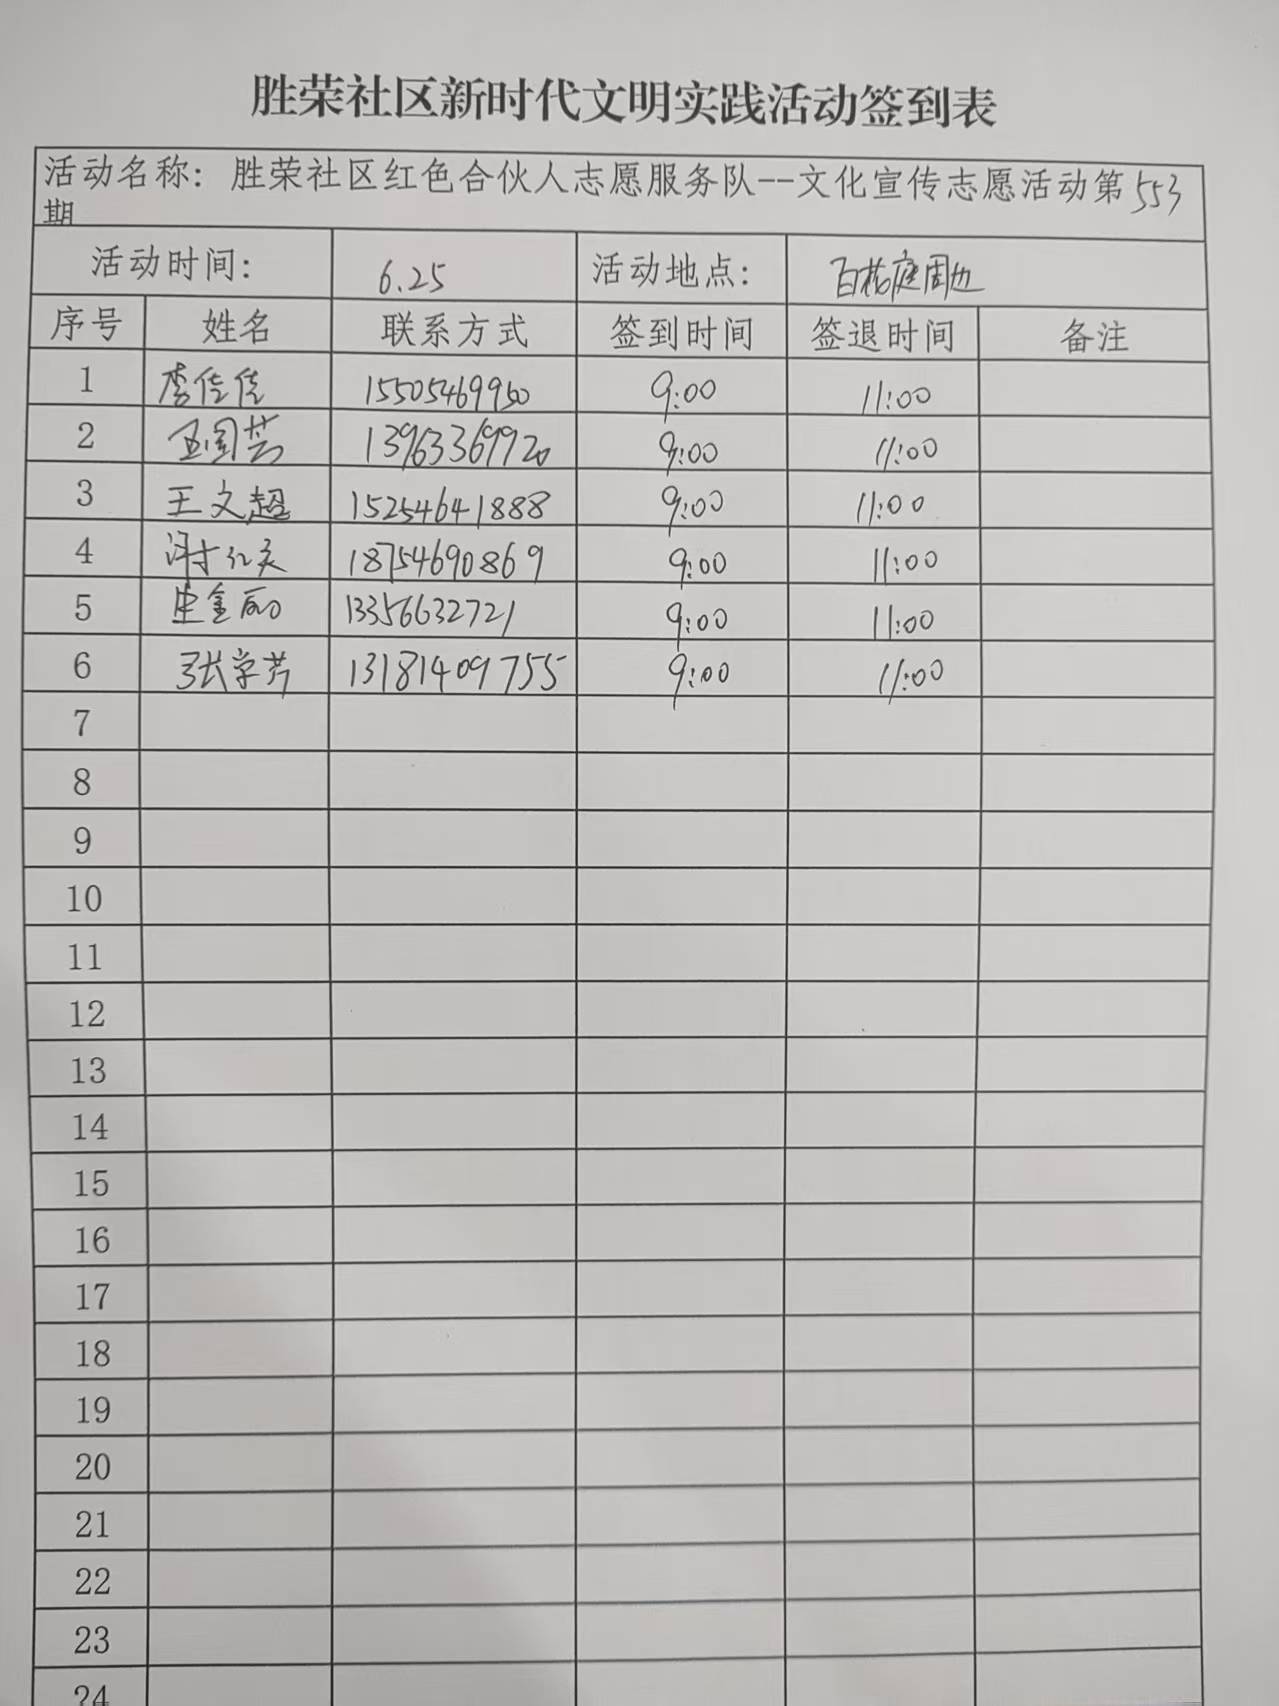 胜荣社区新时代文明实践活动签到表
活动名称：胜荣社区红色合伙人志愿服务队--文化宣传志愿活动第553
期
活动时间： 6.25 活动地点： 百桃庭周边
序号 姓名 联系方式 签到时间 签退时间 备注
1 李佳佳 15505469950 9:00 11:00
2 13963369920 9:00 11:00
3 王文超 15254641888 9:00 11:00
4 18754690869 9:00 11:00
5 13356632721 9:00 11:00
6 张学芳 13181409755 9:00 11:00
7
8
9
10
11
12
13
14
15
16
17
18
19
20
21
22
23
24